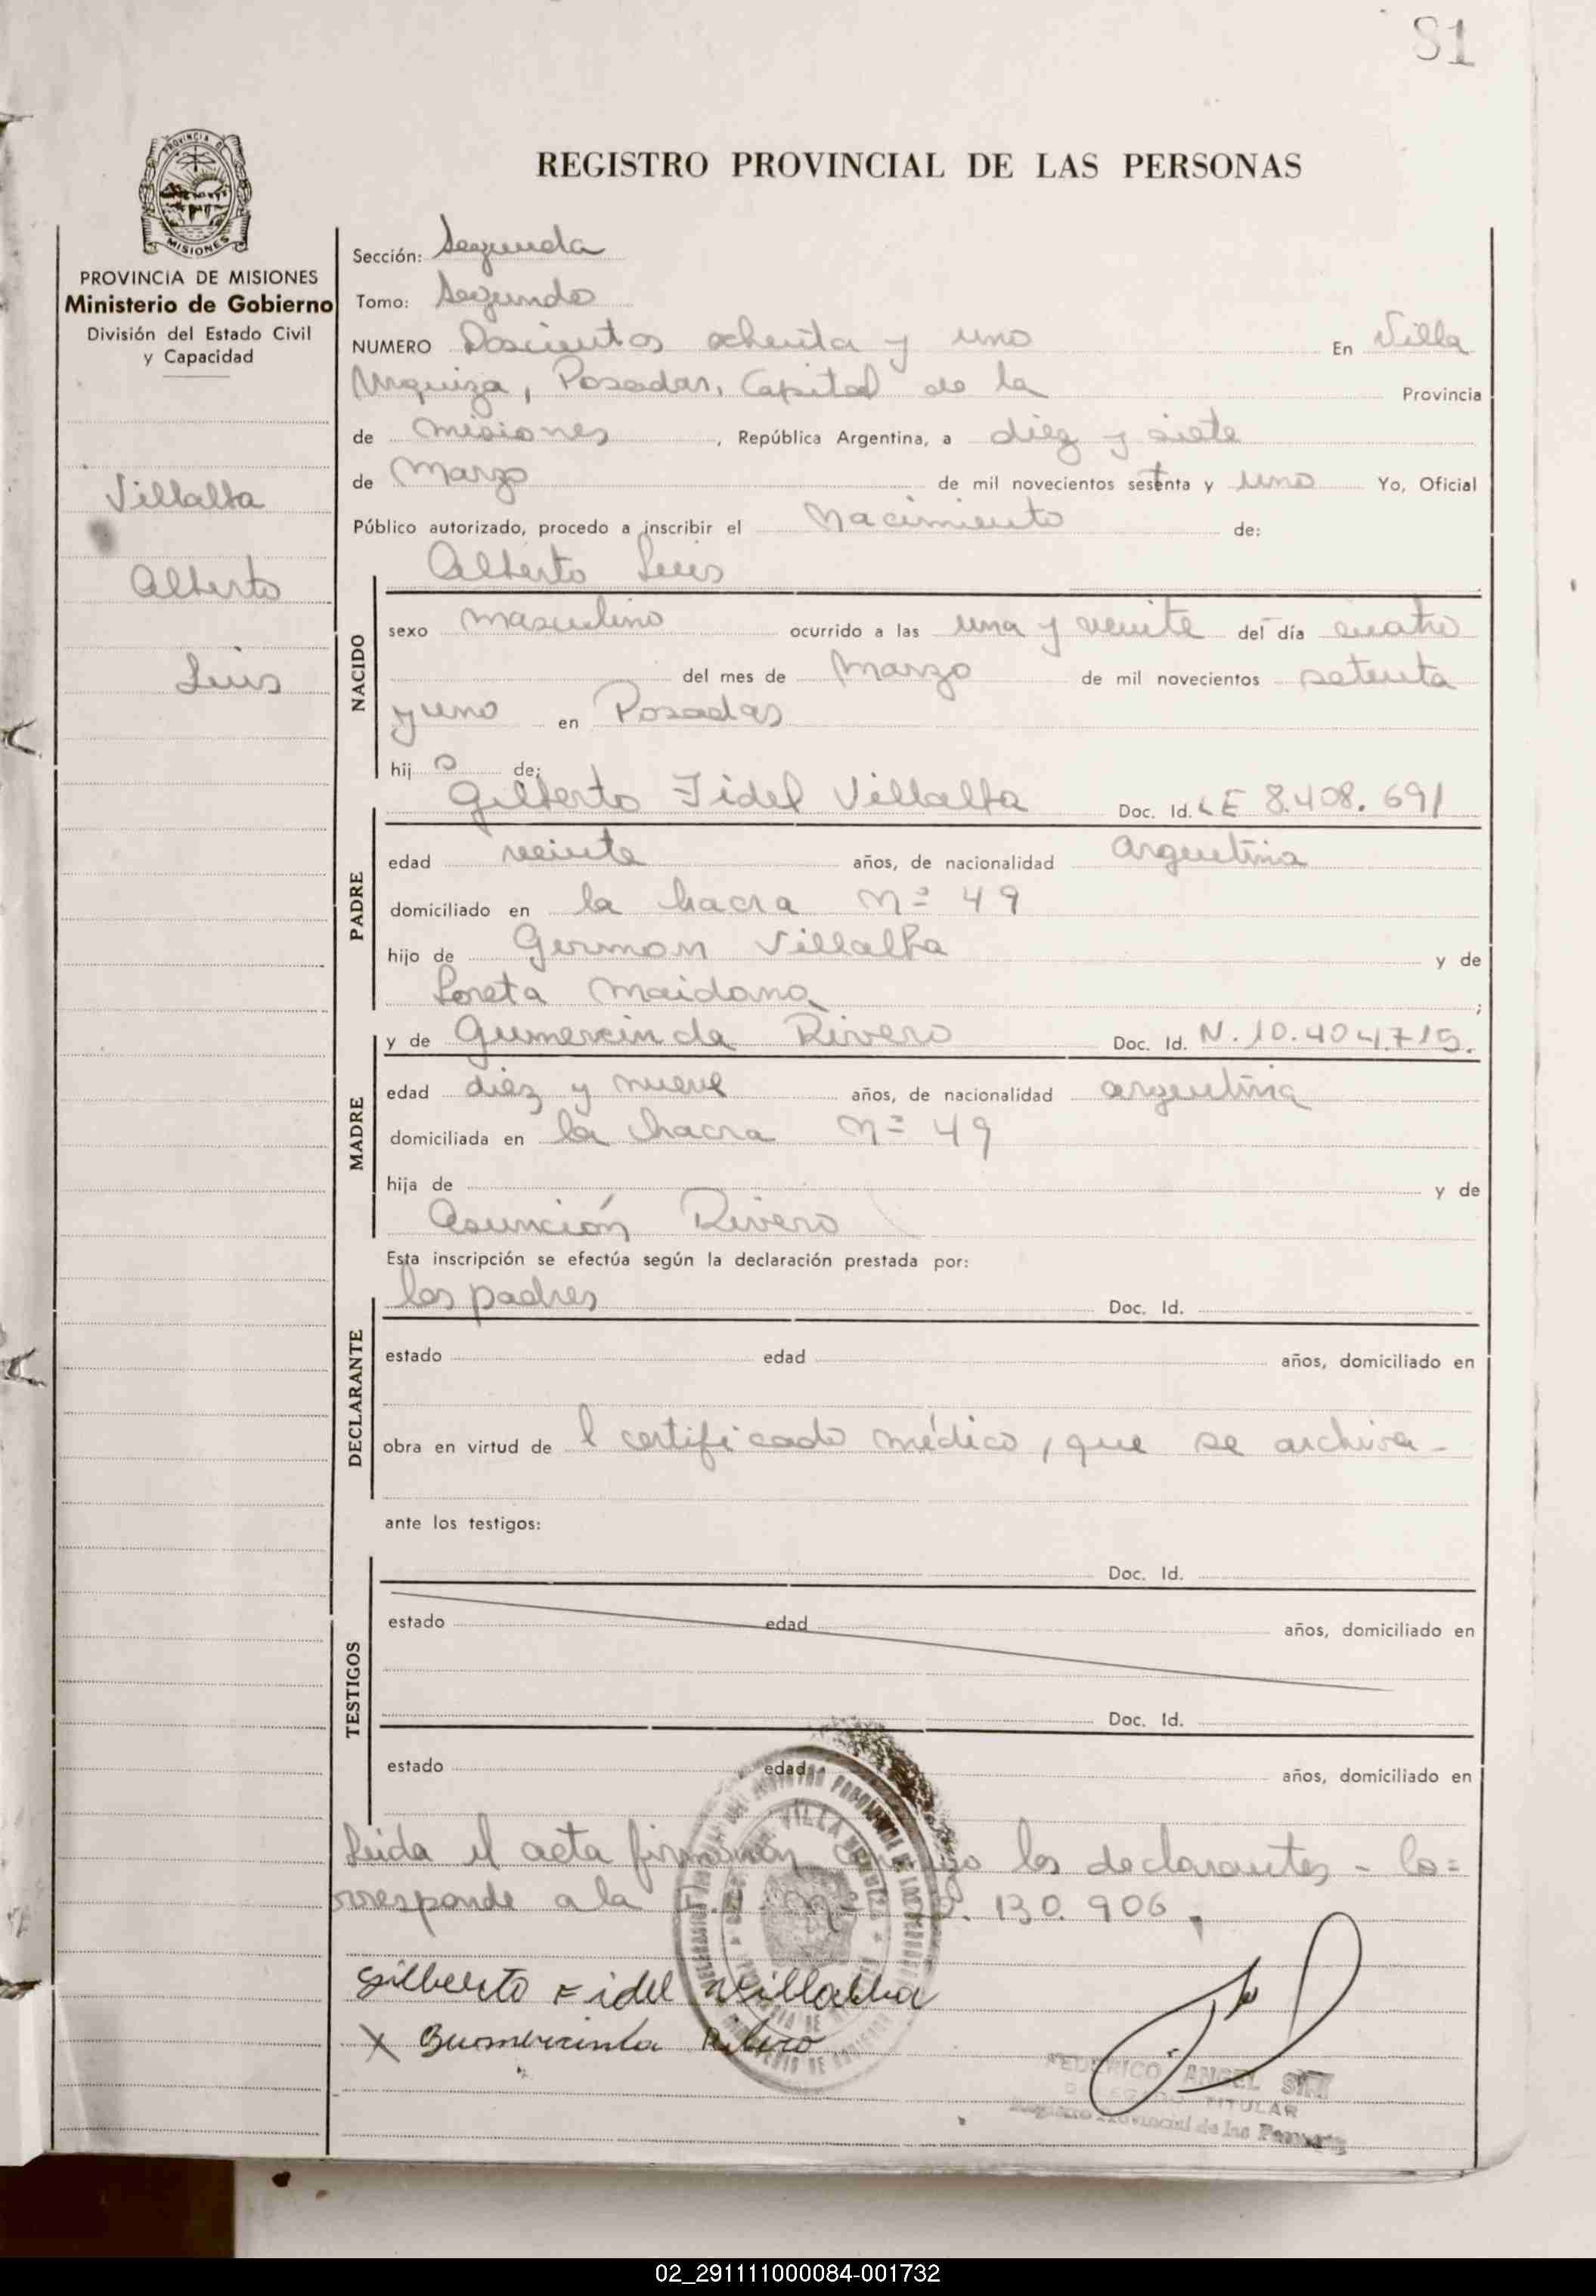 81
PROVINCIA DE
MISIONES
REGISTRO PROVINCIAL DE LAS PERSONAS
PROVINCIA DE MISIONES
Ministerio de Gobierno
División del Estado Civil
y Capacidad
Villalba
Alberto
Luis
Sección: Segunda
Tomo: Segundo
NUMERO Doscientos ochenta y uno En Villa
Urquiza, Posadas, Capital de la Provincia
de Misiones, República Argentina, a diez y siete
de Marzo de mil novecientos setenta y uno Yo, Oficial
Público autorizado, procedo a inscribir el Nacimiento de:
Alberto Luis
NACIDO
sexo masculino ocurrido a las una y veinte del día cuatro
del mes de Marzo de mil novecientos setenta
y uno en Posadas
hijo de:
Gilberto Fidel Villalba Doc. Id. LE 8.408.691
PADRE
edad veinte años, de nacionalidad argentina
domiciliado en la hacra Nº 49
hijo de German Villalba y de
Loreta Maidana;
y de Gumercinda Rivero Doc. Id. N. 10.404.715.
MADRE
edad diez y nueve años, de nacionalidad argentina
domiciliada en la chacra Nº 49
hija de y de
Asunción Rivero
Esta inscripción se efectúa según la declaración prestada por:
los padres Doc. Id.
DECLARANTE
estado edad años, domiciliado en
obra en virtud de l certificado médico, que se archiva-
ante los testigos:
Doc. Id.
TESTIGOS
estado edad años, domiciliado en
Doc. Id.
estado edad años, domiciliado en
Leida el acta firman conmigo los declarantes - Co=
rresponde a la Nº 130.906.
Gilberto Fidel Villalba
X Gumercinda Ribero
FEDERICO ANGEL
DELEGADO TITULAR
Registro Provincial de las Personas
02_291111000084-001732